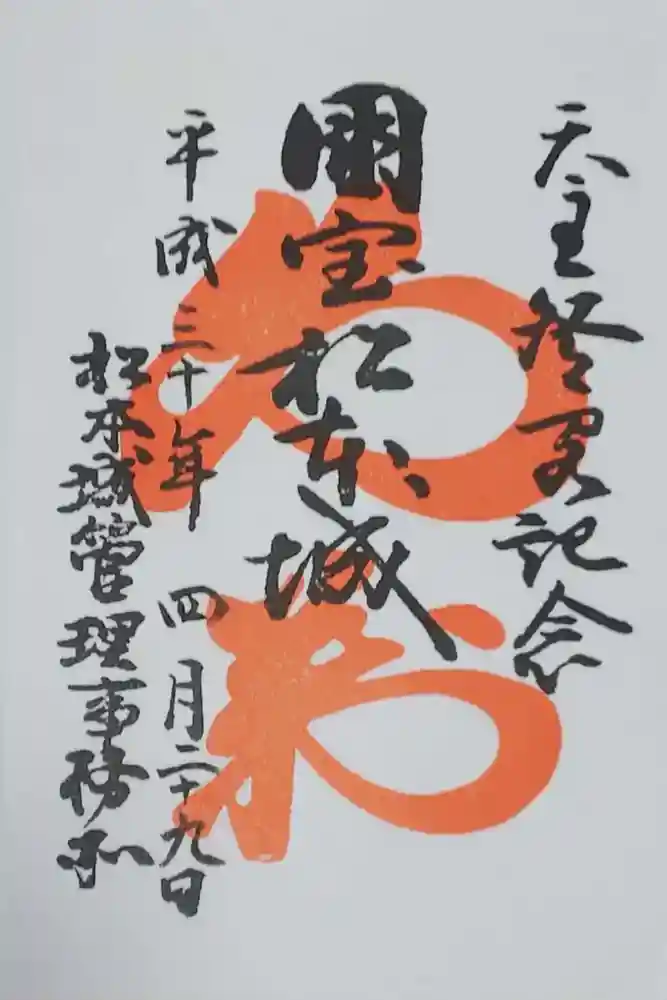 天主登閣記念
國宝松本城
平成三十年 四月二十九日
松本城管理事務所